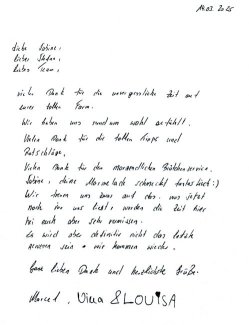 14.03.2025
Liebe Sabine,
lieber Stefan,
liebes Team,
vielen Dank für die unvergessliche Zeit auf
eurer tollen Farm.
Wir haben uns rundum wohl gefühlt.
Vielen Dank für die tollen Tipps und
Ratschläge.
Vielen Dank für den morgendlichen Brötchenservice.
Sabine, deine Marmelade schmeckt fantastisch :)
Wir freuen uns zwar auf das, was jetzt
noch vor uns liegt, werden die Zeit hier
bei euch aber sehr vermissen.
Es wird aber definitiv nicht das letzte
gewesen sein & wir kommen wieder.
Ganz lieben Dank und herzlichste Grüße.
Marcel, Vina & LOUISA